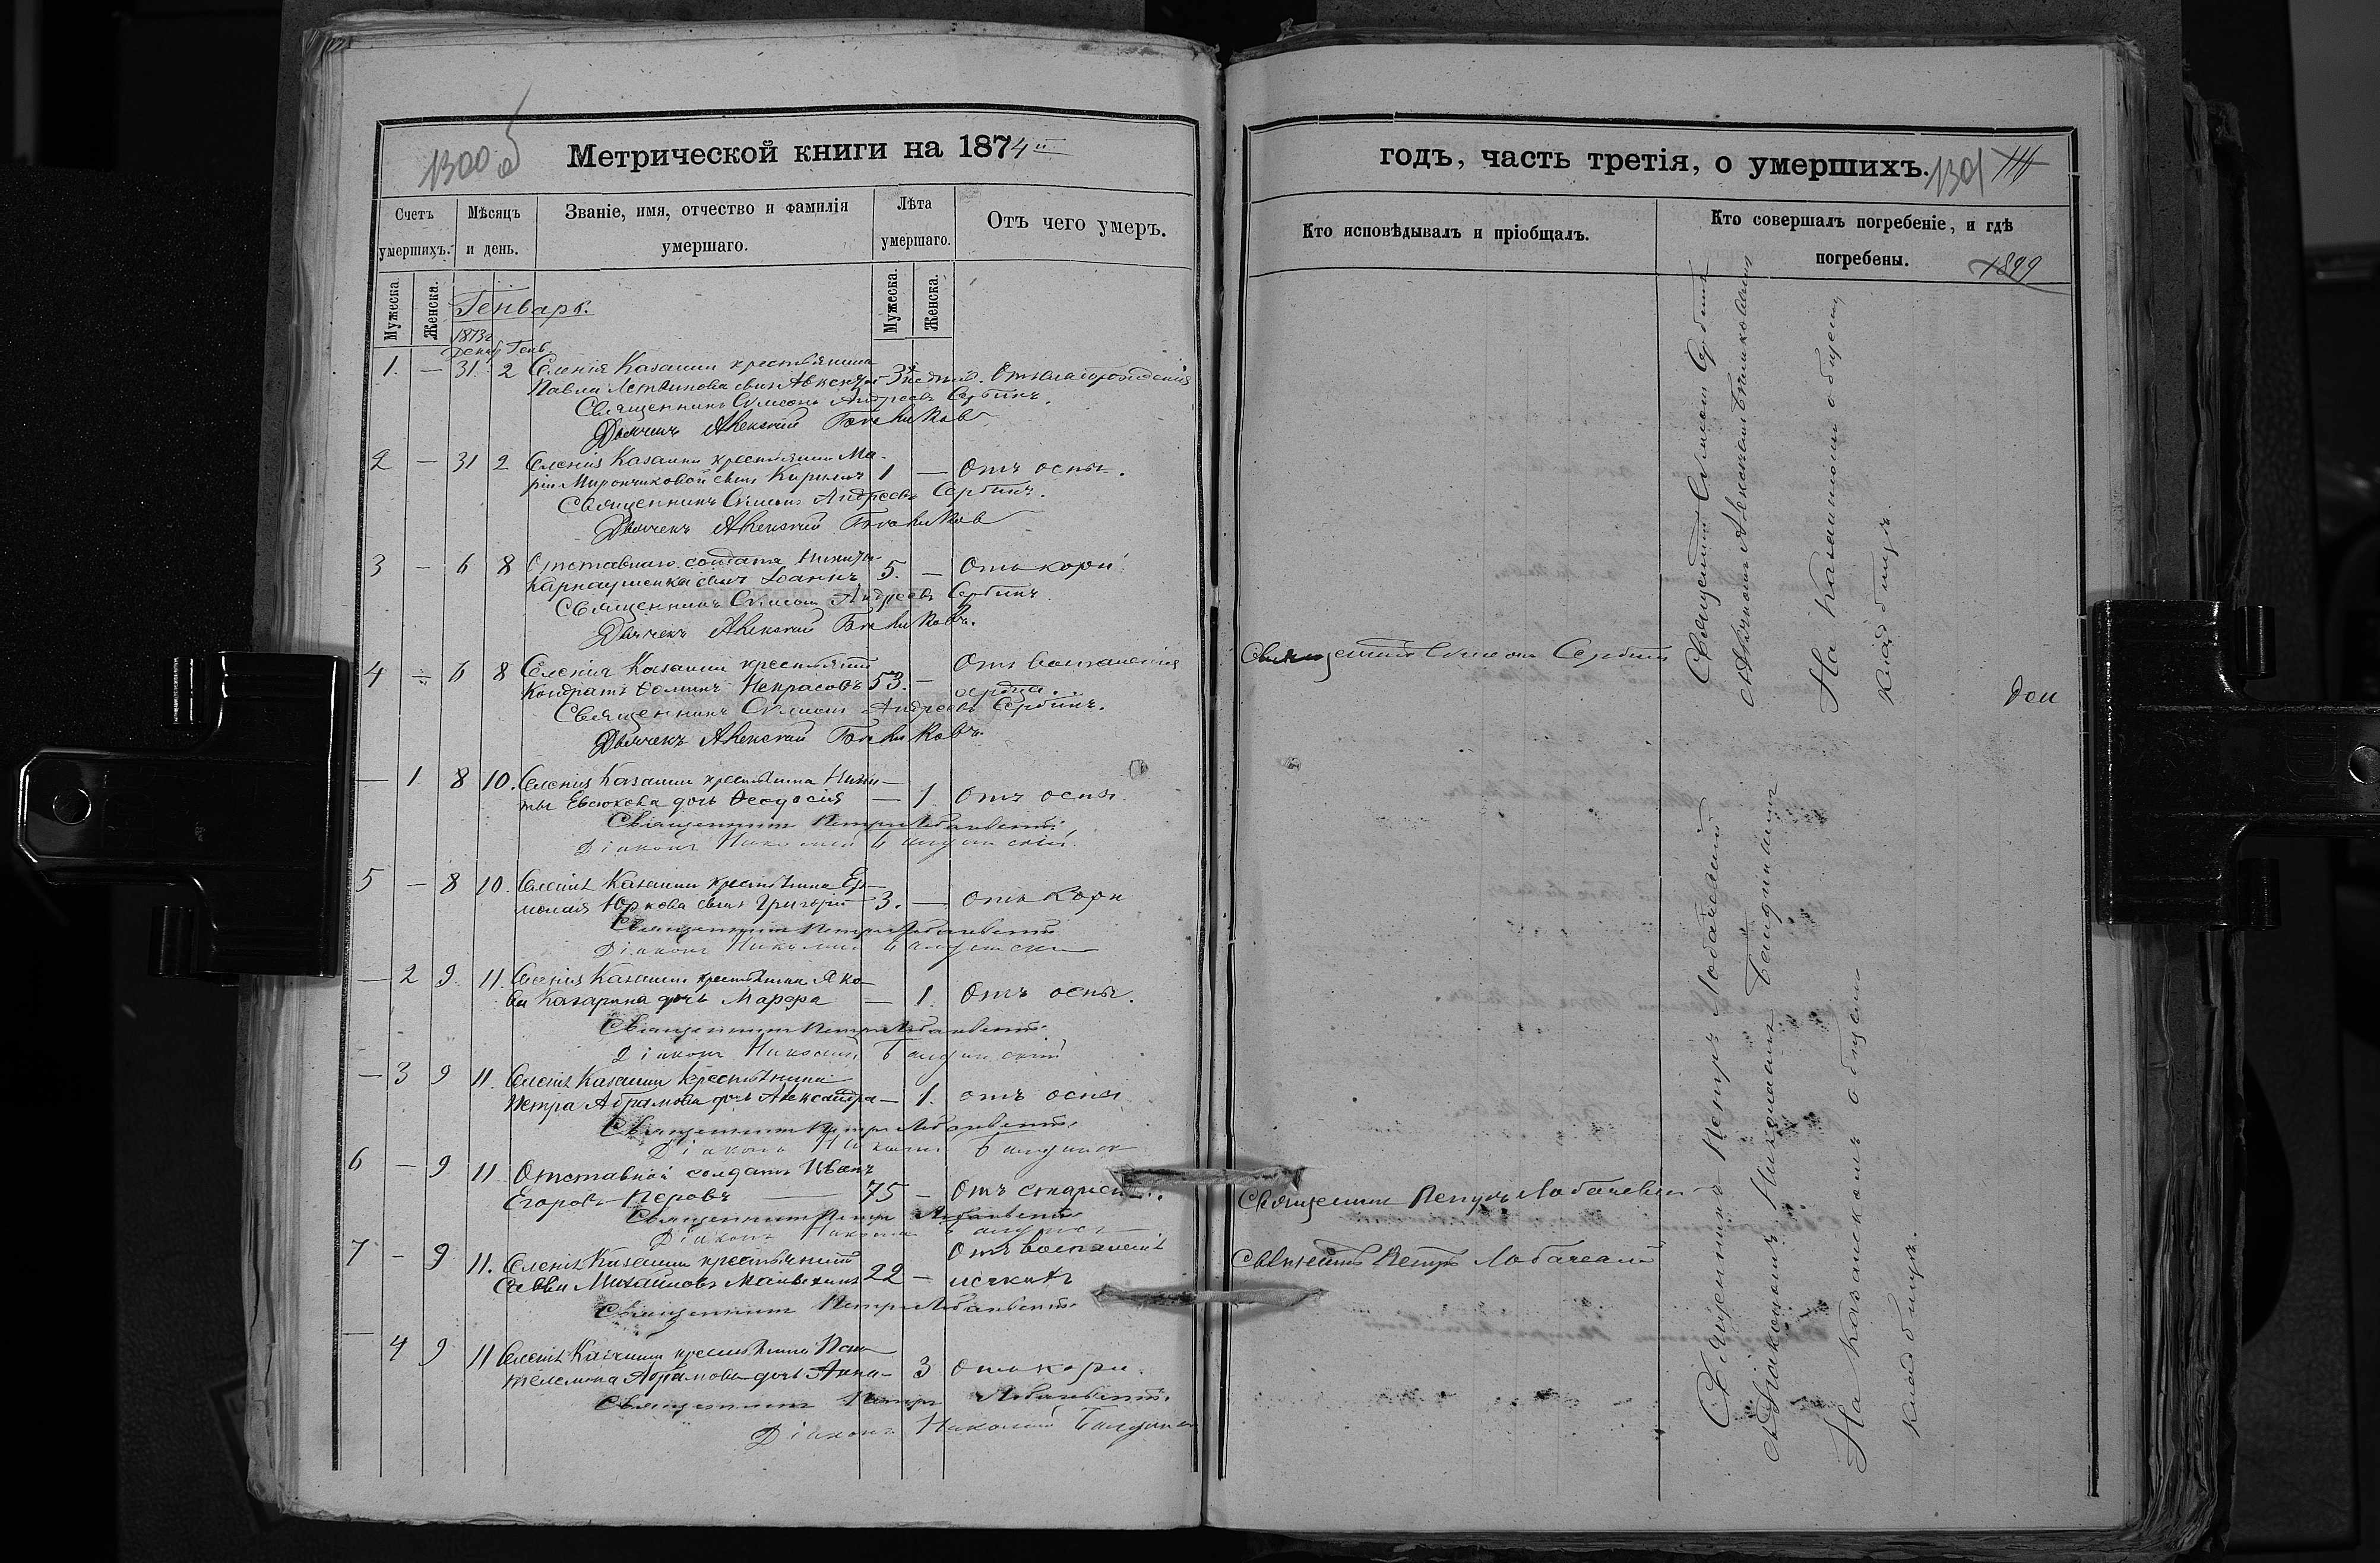 1300 об
Метрической книги на 1874й
Счетъ умершихъ.
Мѣсяцъ и день.
Званіе, имя, отчество и фамилія умершаго.
Лѣта умершаго.
Отъ чего умеръ.
Мужеска.
Женска.
Мужеска.
Женска.
Генварь.
1873г.
Декаб Генв
1. — 31. 2 Селенія Казанки крестьянина
Павла сынъ 3 недѣль. Отъ слаборожденія
Священникъ Симеонъ Андреевъ Сербинъ.
Дьячекъ Алексѣй
2 — 31 2 Селенія Казанки крестьянки Ма-
ріи Мирончиковой сынъ Кириллъ 1 — Отъ оспы.
Священникъ Симеонъ Андреевъ Сербинъ.
Дьячекъ Алексѣй
3 — 6 8 Отставнаго солдата Никиты
Карнаушенка сынъ Іоаннъ 5. — Отъ кори
Священникъ Симеонъ Андреевъ Сербинъ
Дьячекъ Алексѣй
4 — 6 8 Селенія Казанки крестьянинъ
Кондратъ Некрасовъ 53. — Отъ воспаленія
сердца.
Священникъ Симеонъ Андреевъ Сербинъ.
Дьячекъ Алексѣй
— 1 8 10. Селенія Казанки крестьянина Ники-
ты Евсюкова дочь Ѳеодосія — 1. Отъ оспы
Священникъ Петръ Лобачевскій
Діаконъ Николай
5 — 8 10. Селенія Казанки крестьянина Ер-
молая Юркова сынъ Григорій 3. — Отъ кори
Священникъ Петръ Лобачевскій
Діаконъ Николай
— 2 9 11. Селенія Казанки крестьянина Яко-
ва Казарина дочь Марѳа — 1. Отъ оспы.
Священникъ Петръ Лобачевскій
Діаконъ Николай
— 3 9 11. Селенія Казанки крестьянина
Петра Абрамова дочь Александра — 1. отъ оспы
Священникъ Петръ Лобачевскій
Діаконъ Николай
6 — 9 11 Отставной солдатъ Иванъ
Егоровъ Перовъ — 75 — Отъ старости.
Священникъ Петръ Лобачевскій
Діаконъ Николай
7 — 9 11. Селенія Казанки крестьянинъ
Савва Михайловъ 22 — Отъ воспаленія
легкихъ
Священникъ Петръ Лобачевскій
— 4 9 11 Селенія Казанки крестьянина Пан-
телемона Абрамова дочь Анна — 3 Отъ кори.
Священникъ Петръ Лобачевскій
Діаконъ Николай
годъ, часть третія, о умершихъ.
1301
Кто исповѣдывалъ и пріобщалъ.
Кто совершалъ погребеніе, и гдѣ погребены.
1899
Священникъ Симеонъ Сербинъ
Священникъ Петръ Лобачевскій
Священникъ Петръ Лобачевскій
Священникъ Симеонъ Сербинъ
На Казанскомъ общемъ
кладбищѣ.
Священникъ Петръ Лобачевскій
съ Діакономъ Николаемъ
На Казанскомъ общемъ
кладбищѣ.